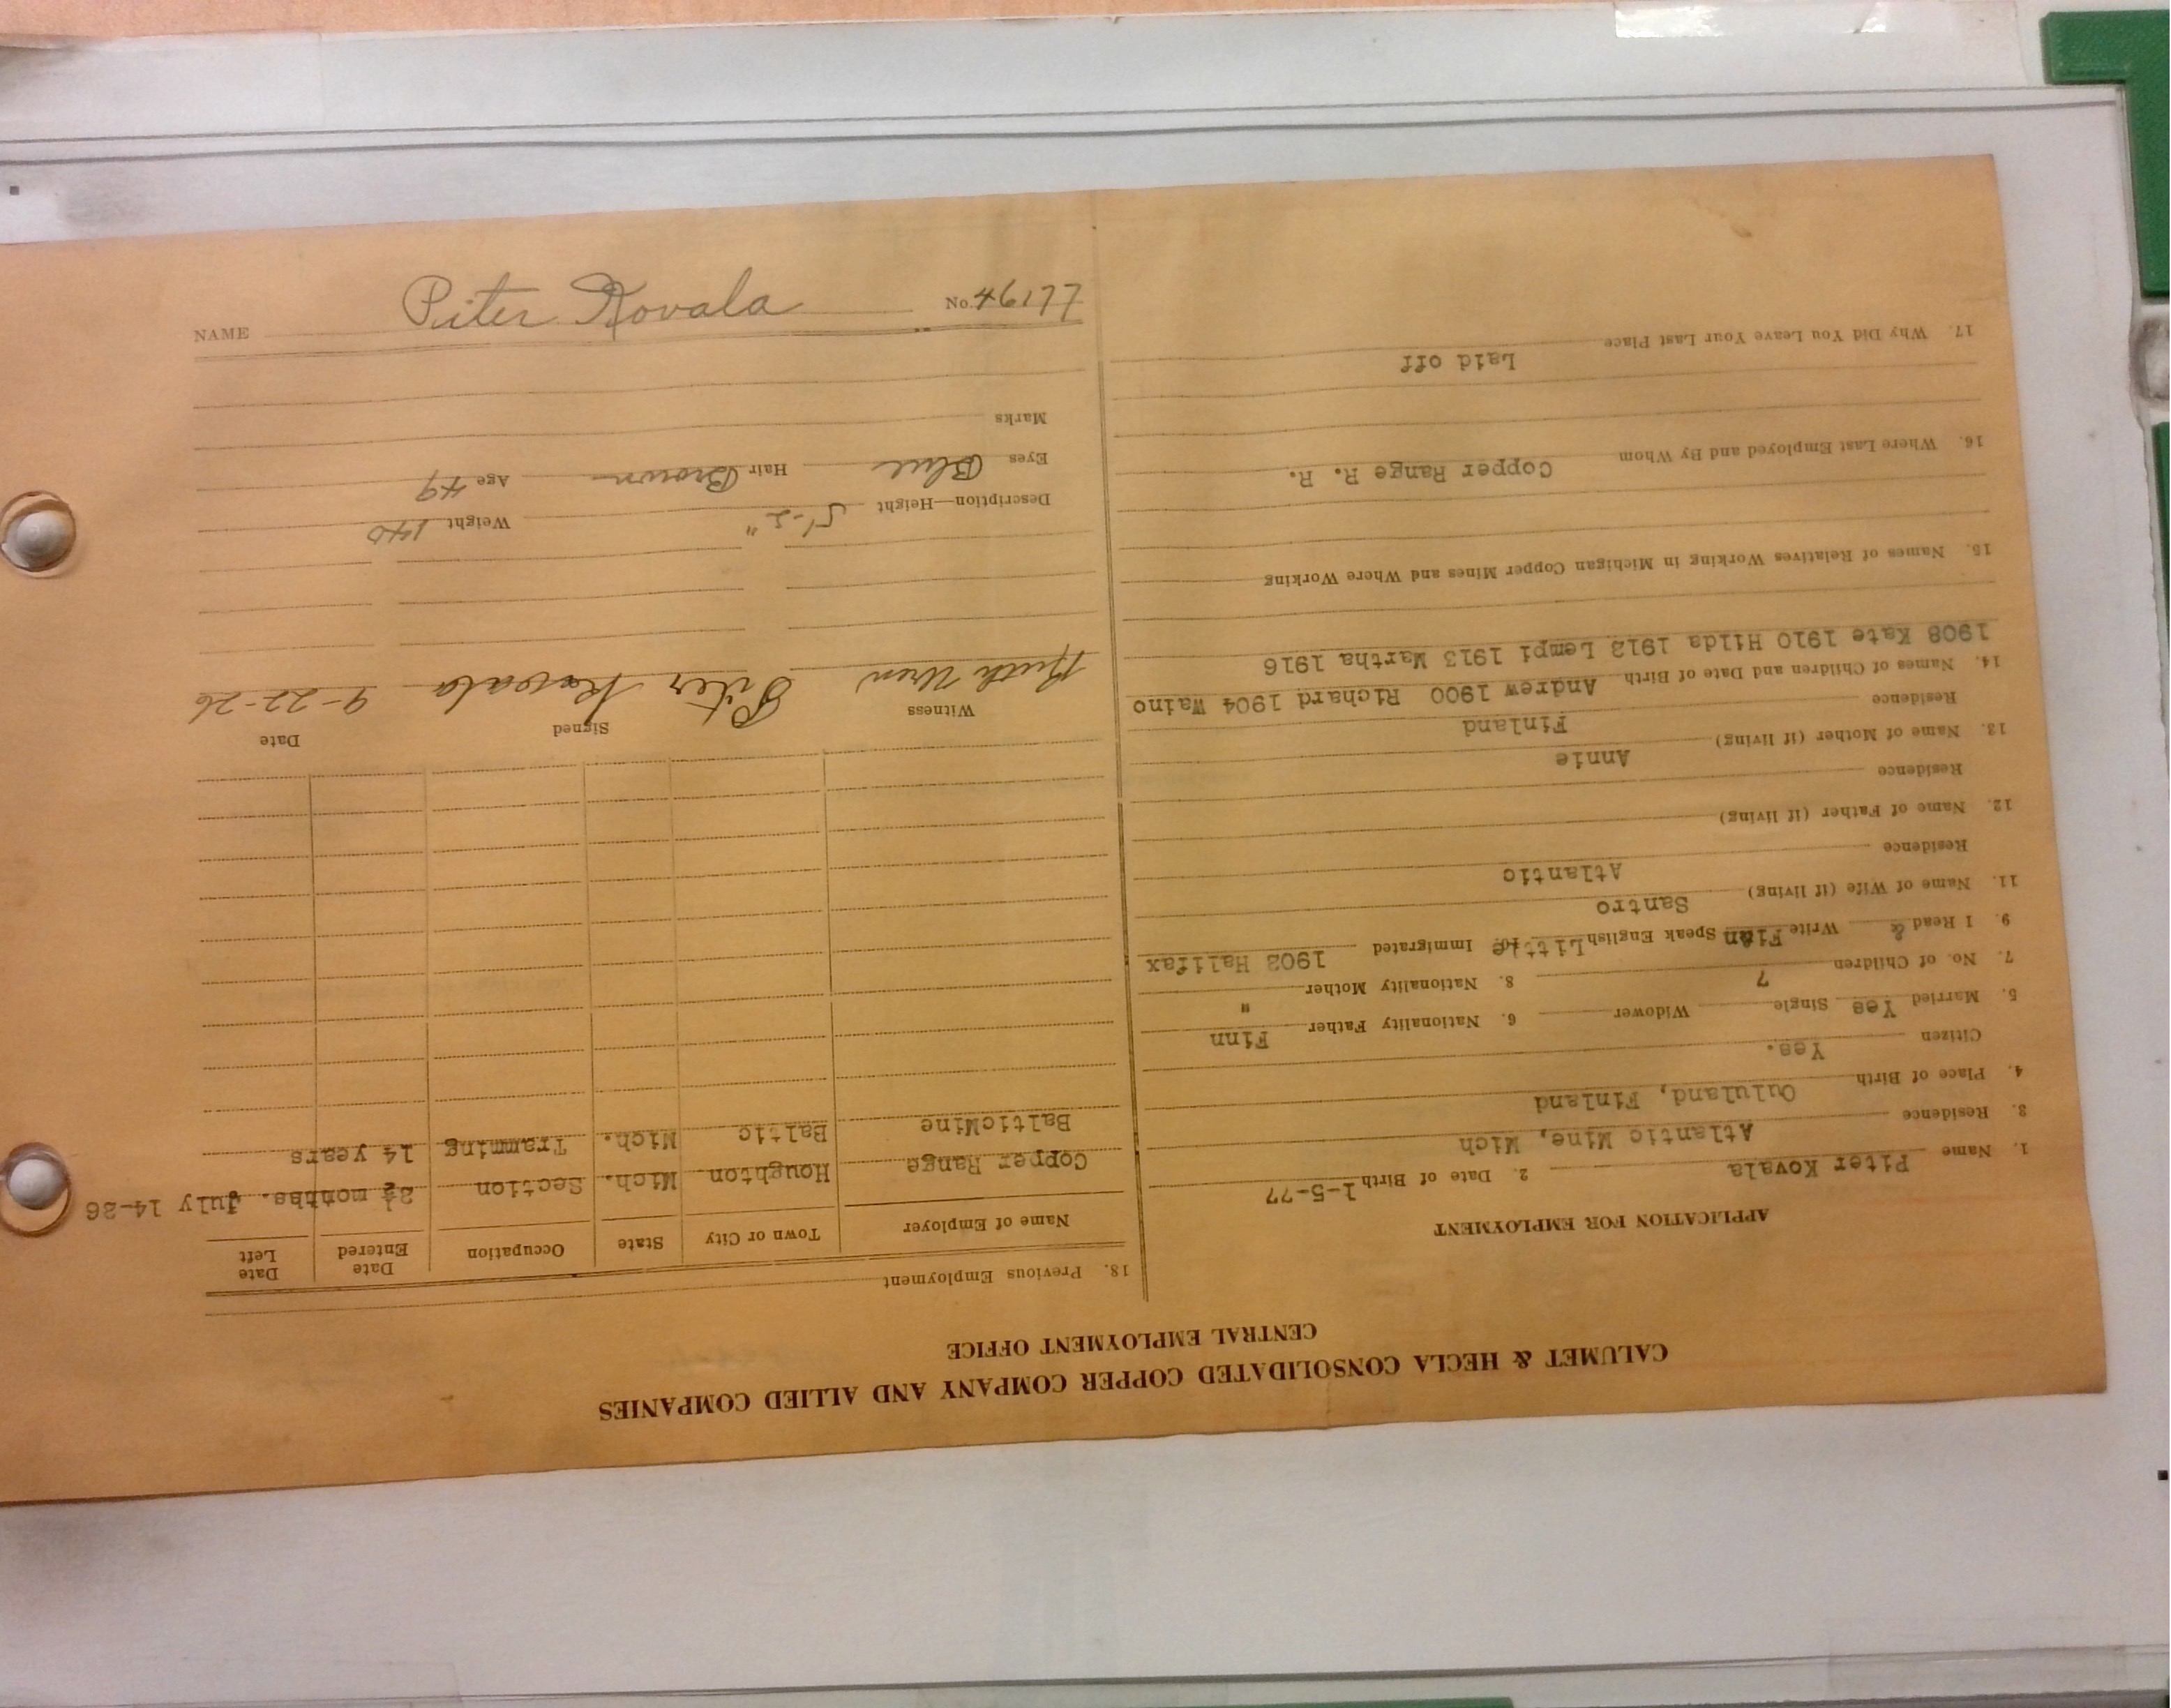 CALUMET & HECLA CONSOLIDATED COPPER COMPANY AND ALLIED COMPANIES
CENTRAL EMPLOYMENT OFFICE
APPLICATION FOR EMPLOYMENT
1. Name Piter Kovala 2. Date of Birth 1-5-77
3. Residence Atlantic Mine, Mich
4. Place of Birth Oululand, Finland
Citizen Yes.
5. Married Yes Single Widower 6. Nationality Father Finn
7. No. of Children 7 8. Nationality Mother "
9. I Read & Write Finn Speak English Little 10. Immigrated 1903 Halifax
11. Name of Wife (if living) Santro
Residence Atlantic
12. Name of Father (if living)
Residence
13. Name of Mother (if living) Annie
Residence Finland
14. Names of Children and Date of Birth Andrew 1900 Richard 1904 Waino
1908 Kate 1910 Hilda 1912 Lempi 1913 Martha 1916
15. Names of Relatives Working in Michigan Copper Mines and Where Working
16. Where Last Employed and By Whom Copper Range R. R.
17. Why Did You Leave Your Last Place Laid off
18. Previous Employment
Name of Employer Town or City State Occupation Date Entered Date Left
Copper Range Houghton Mich. Section 2½ months. July 14-26
BalticMine Baltic Mich. Tramming 14 years
Witness Signed Date
Ruth Uren Piter Kovala 9-22-26
Description—Height 5'-2" Weight 140
Eyes Blue Hair Brown Age 49
Marks
NAME Piter Kovala No. 46177